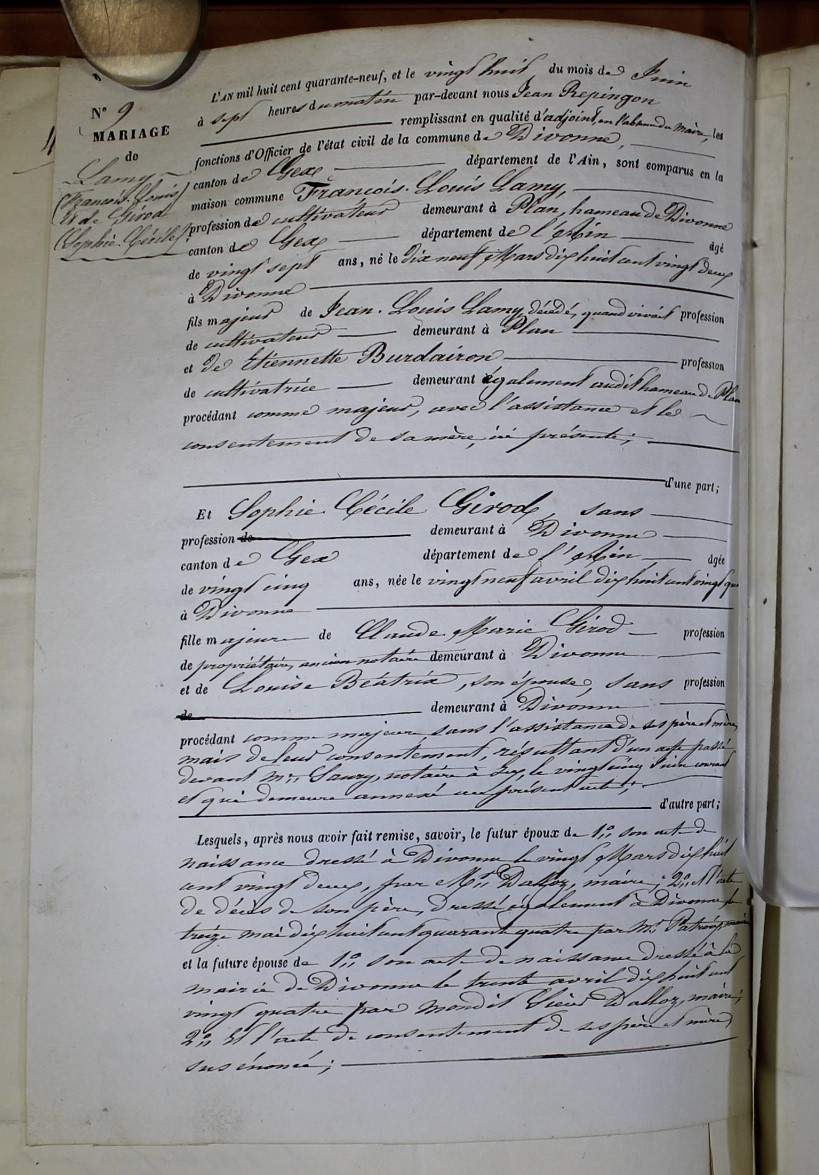 N° 9
MARIAGE
de
Lamy
François Louis
et de Girod
Sophie Cécile
L'AN mil huit cent quarante-neuf, et le vingt huit du mois de Juin
à sept heures du matin par-devant nous Jean Repingon
remplissant en qualité d'adjoint, en l'absence du Maire, les
fonctions d'Officier de l'état civil de la commune de Divonne,
canton de Gex département de l'Ain, sont comparus en la
maison commune François Louis Lamy,
profession de cultivateur demeurant à Plan, hameau de Divonne
canton de Gex département de l'Ain âgé
de vingt sept ans, né le dix neuf Mars dix huit cent vingt deux
à Divonne
fils majeur de Jean Louis Lamy, décédé, quand vivait profession
de cultivateur demeurant à Plan
et de Etiennette Burdairon profession
de cultivatrice demeurant également audit hameau de Plan
procédant comme majeur, avec l'assistance et le
consentement de sa mère, ici présente;
d'une part;
Et Sophie Cécile Girod, sans
profession de demeurant à Divonne
canton de Gex département de l'Ain âgée
de vingt cinq ans, née le vingt neuf avril dix huit cent vingt
à Divonne
fille majeure de Claude Marie Girod profession
de propriétaire, ancien notaire demeurant à Divonne
et de Louise Béatrix, son épouse, sans profession
de demeurant à Divonne
procédant comme majeure, sans l'assistance de ses père et mère,
mais de leur consentement, résultant d'un acte passé
devant Mtre notaire à Gex, le vingt cinq Juin courant
et qui demeure annexé au présent acte;
d'autre part;
Lesquels, après nous avoir fait remise, savoir, le futur époux de 1° son acte de
naissance dressé à Divonne le vingt Mars dix huit
cent vingt deux, par Mr Dalloz, maire; 2° et l'acte
de décès de son père, dressé également à Divonne le
treize mai dix huit cent quarante quatre par Mr
et la future épouse de 1° son acte de naissance dressé à la
mairie de Divonne le trente avril dix huit cent
vingt quatre par mondit Sieur Dalloz, maire;
2° Et l'acte de consentement de ses père et mère
sus énoncé;